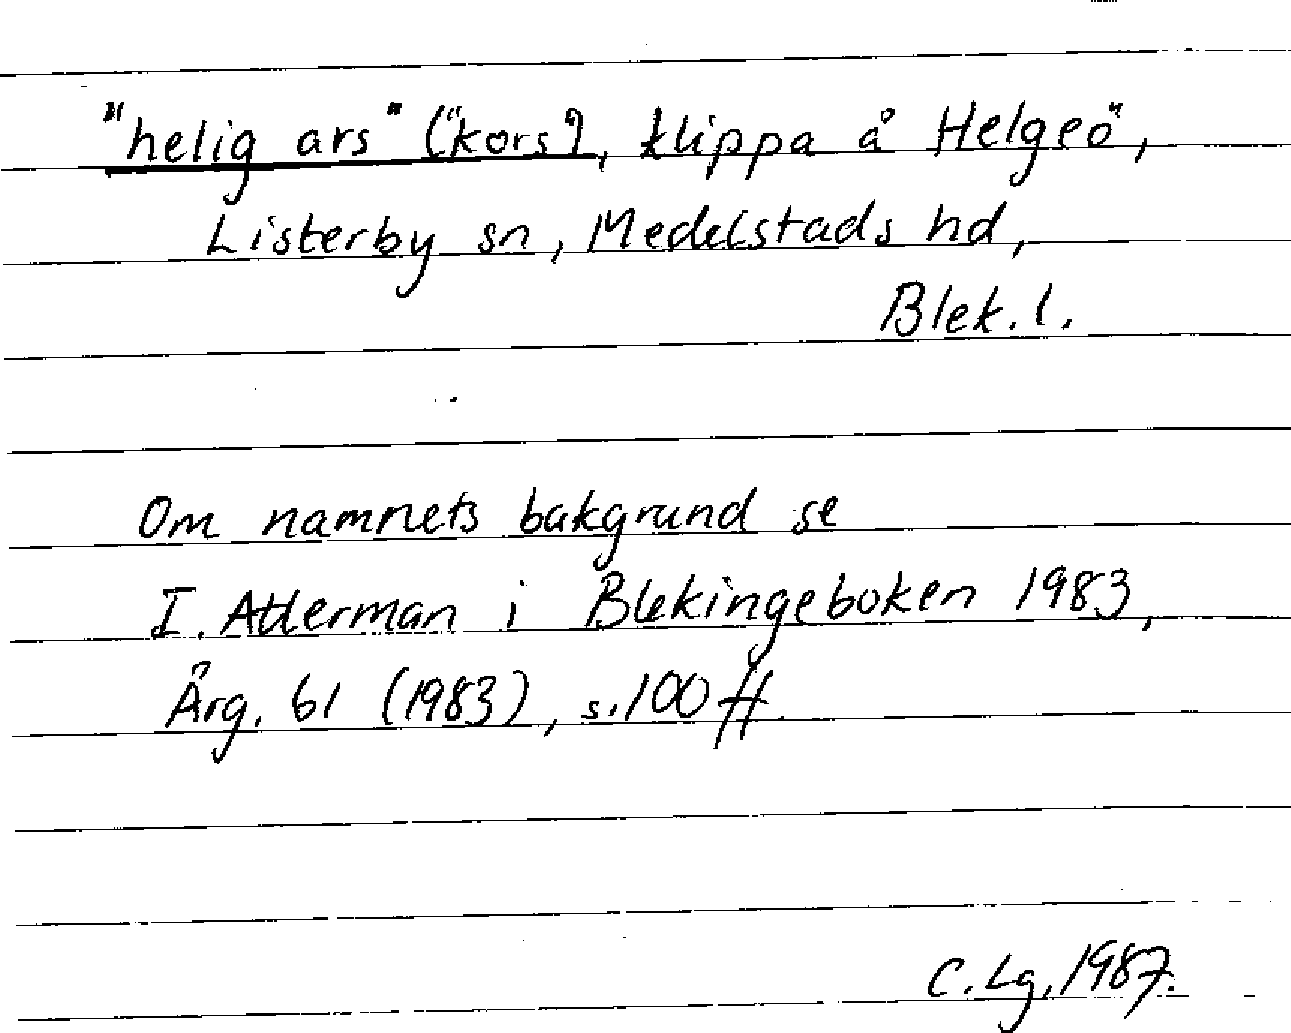 "helig ars" ("kors"), klippa å Helgeö,
Listerby sn, Medelstads hd,
Blek. l.
Om namnets bakgrund se
I. Atterman i Blekingeboken 1983,
Årg. 61 (1983), s. 100 ff.
C. Lg, 1987.